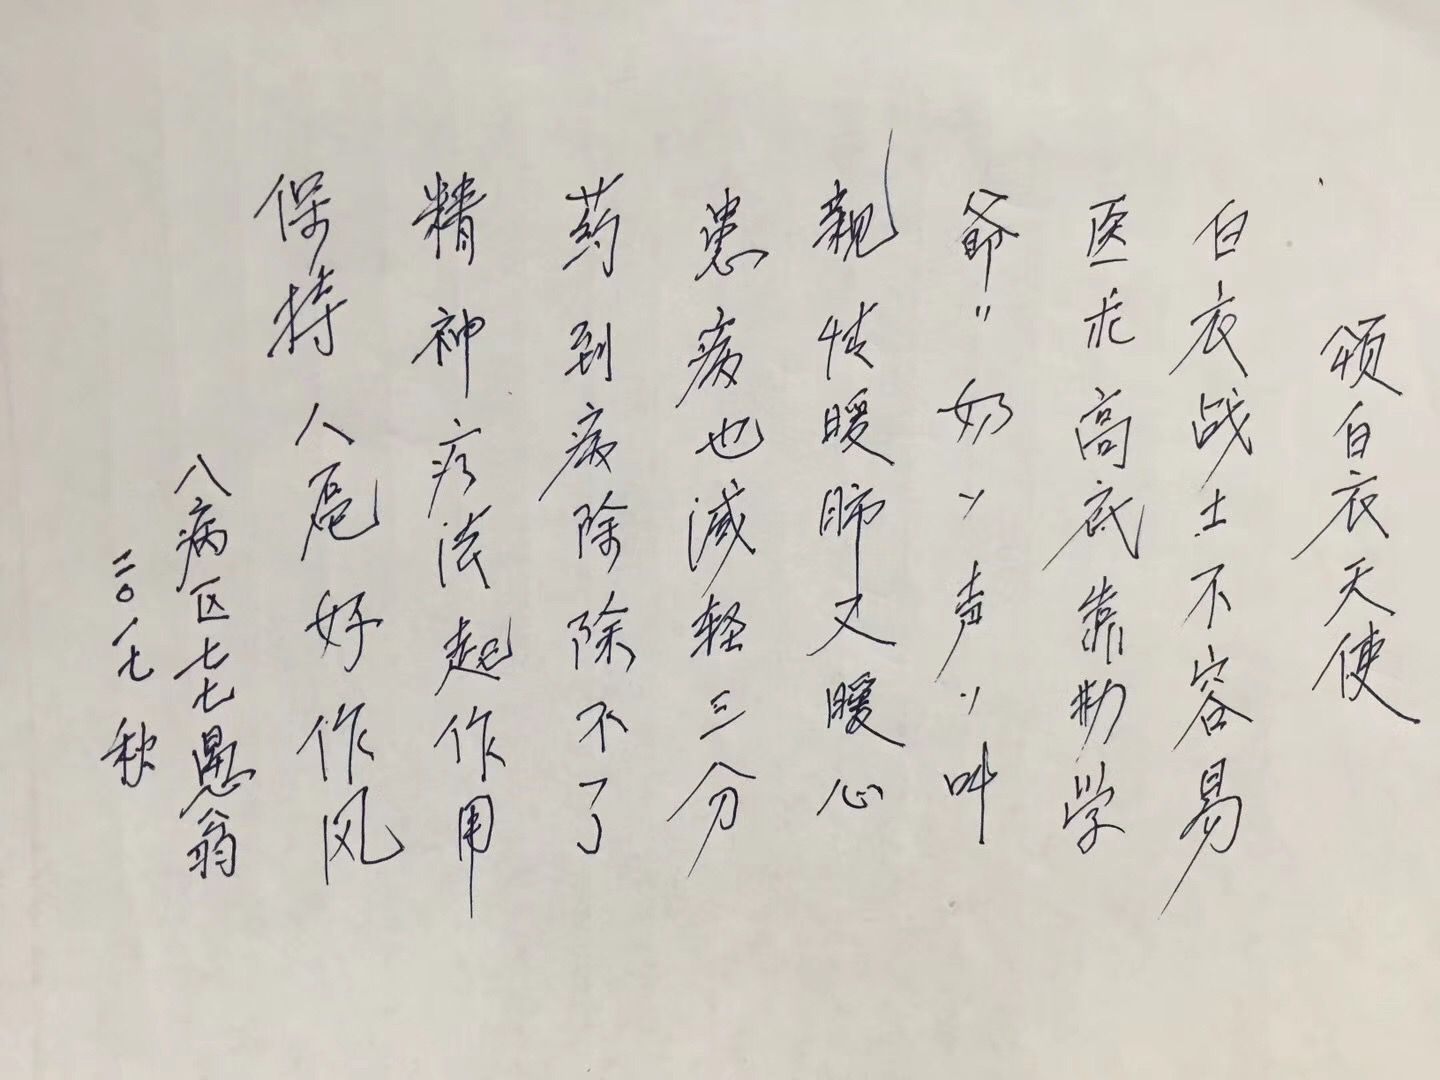 颂白衣天使
白衣战士不容易
医术高底靠勤学
爷〃奶〃声〃叫
親情暖肺又暖心
患病也减轻三分
药到病除除不了
精神疗法起作用
保持人好作风
八病区七七愚翁
二〇一七秋